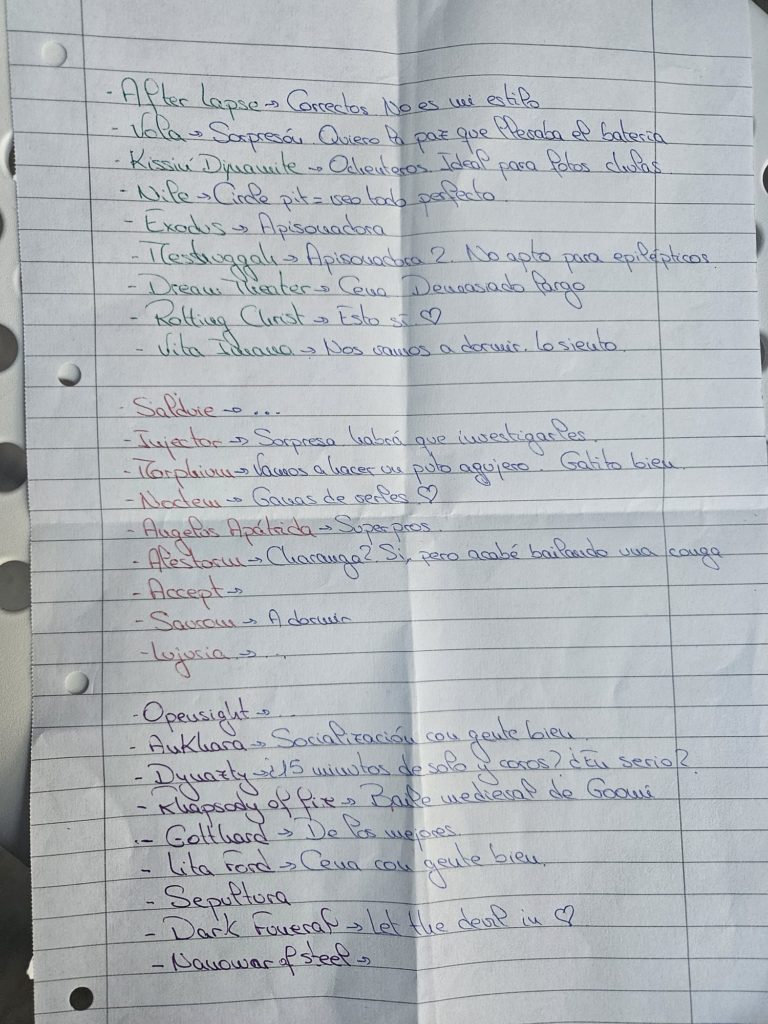 - After Lapse → Correctos No es mi estilo
- Vola → Sorpresón. Quiero la paz que llevaba el batería
- Kissin' Dynamite → Ochenteros. Ideal para fotos chulas
- Nile → Circle pit = veo todo perfecto.
- Exodus → Apisonadora
- Meshuggah → Apisonadora 2. No apto para epilépticos
- Dream Theater → Cena Demasiado largo
- Rotting Christ → Esto sí ♡
- Vita Idnana → Nos vamos a dormir. Lo siento.
- Salduie → ...
- Injector → Sorpresa habrá que investigarles.
- Morphium → Vamos a hacer un puto agujero. Gatito bien.
- Noctem → Ganas de verles ♡
- Angelus Apátrida → Super pros.
- Alestorm → Charanga? Si, pero acabé bailando una conga
- Accept →
- Saurom → A dormir
- Lujuria → ...
- Opensight → ...
- Ankhara → Socialización con gente bien.
- Dynazty → ¿15 minutos de solo y coros? ¿En serio?
- Rhapsody of fire → Baile medieval de Goomi
- Gotthard → De los mejores.
- Lita Ford → Cena con gente bien.
- Sepultura
- Dark Funeral → Let the devil in ♡
- Nanowar of steel →